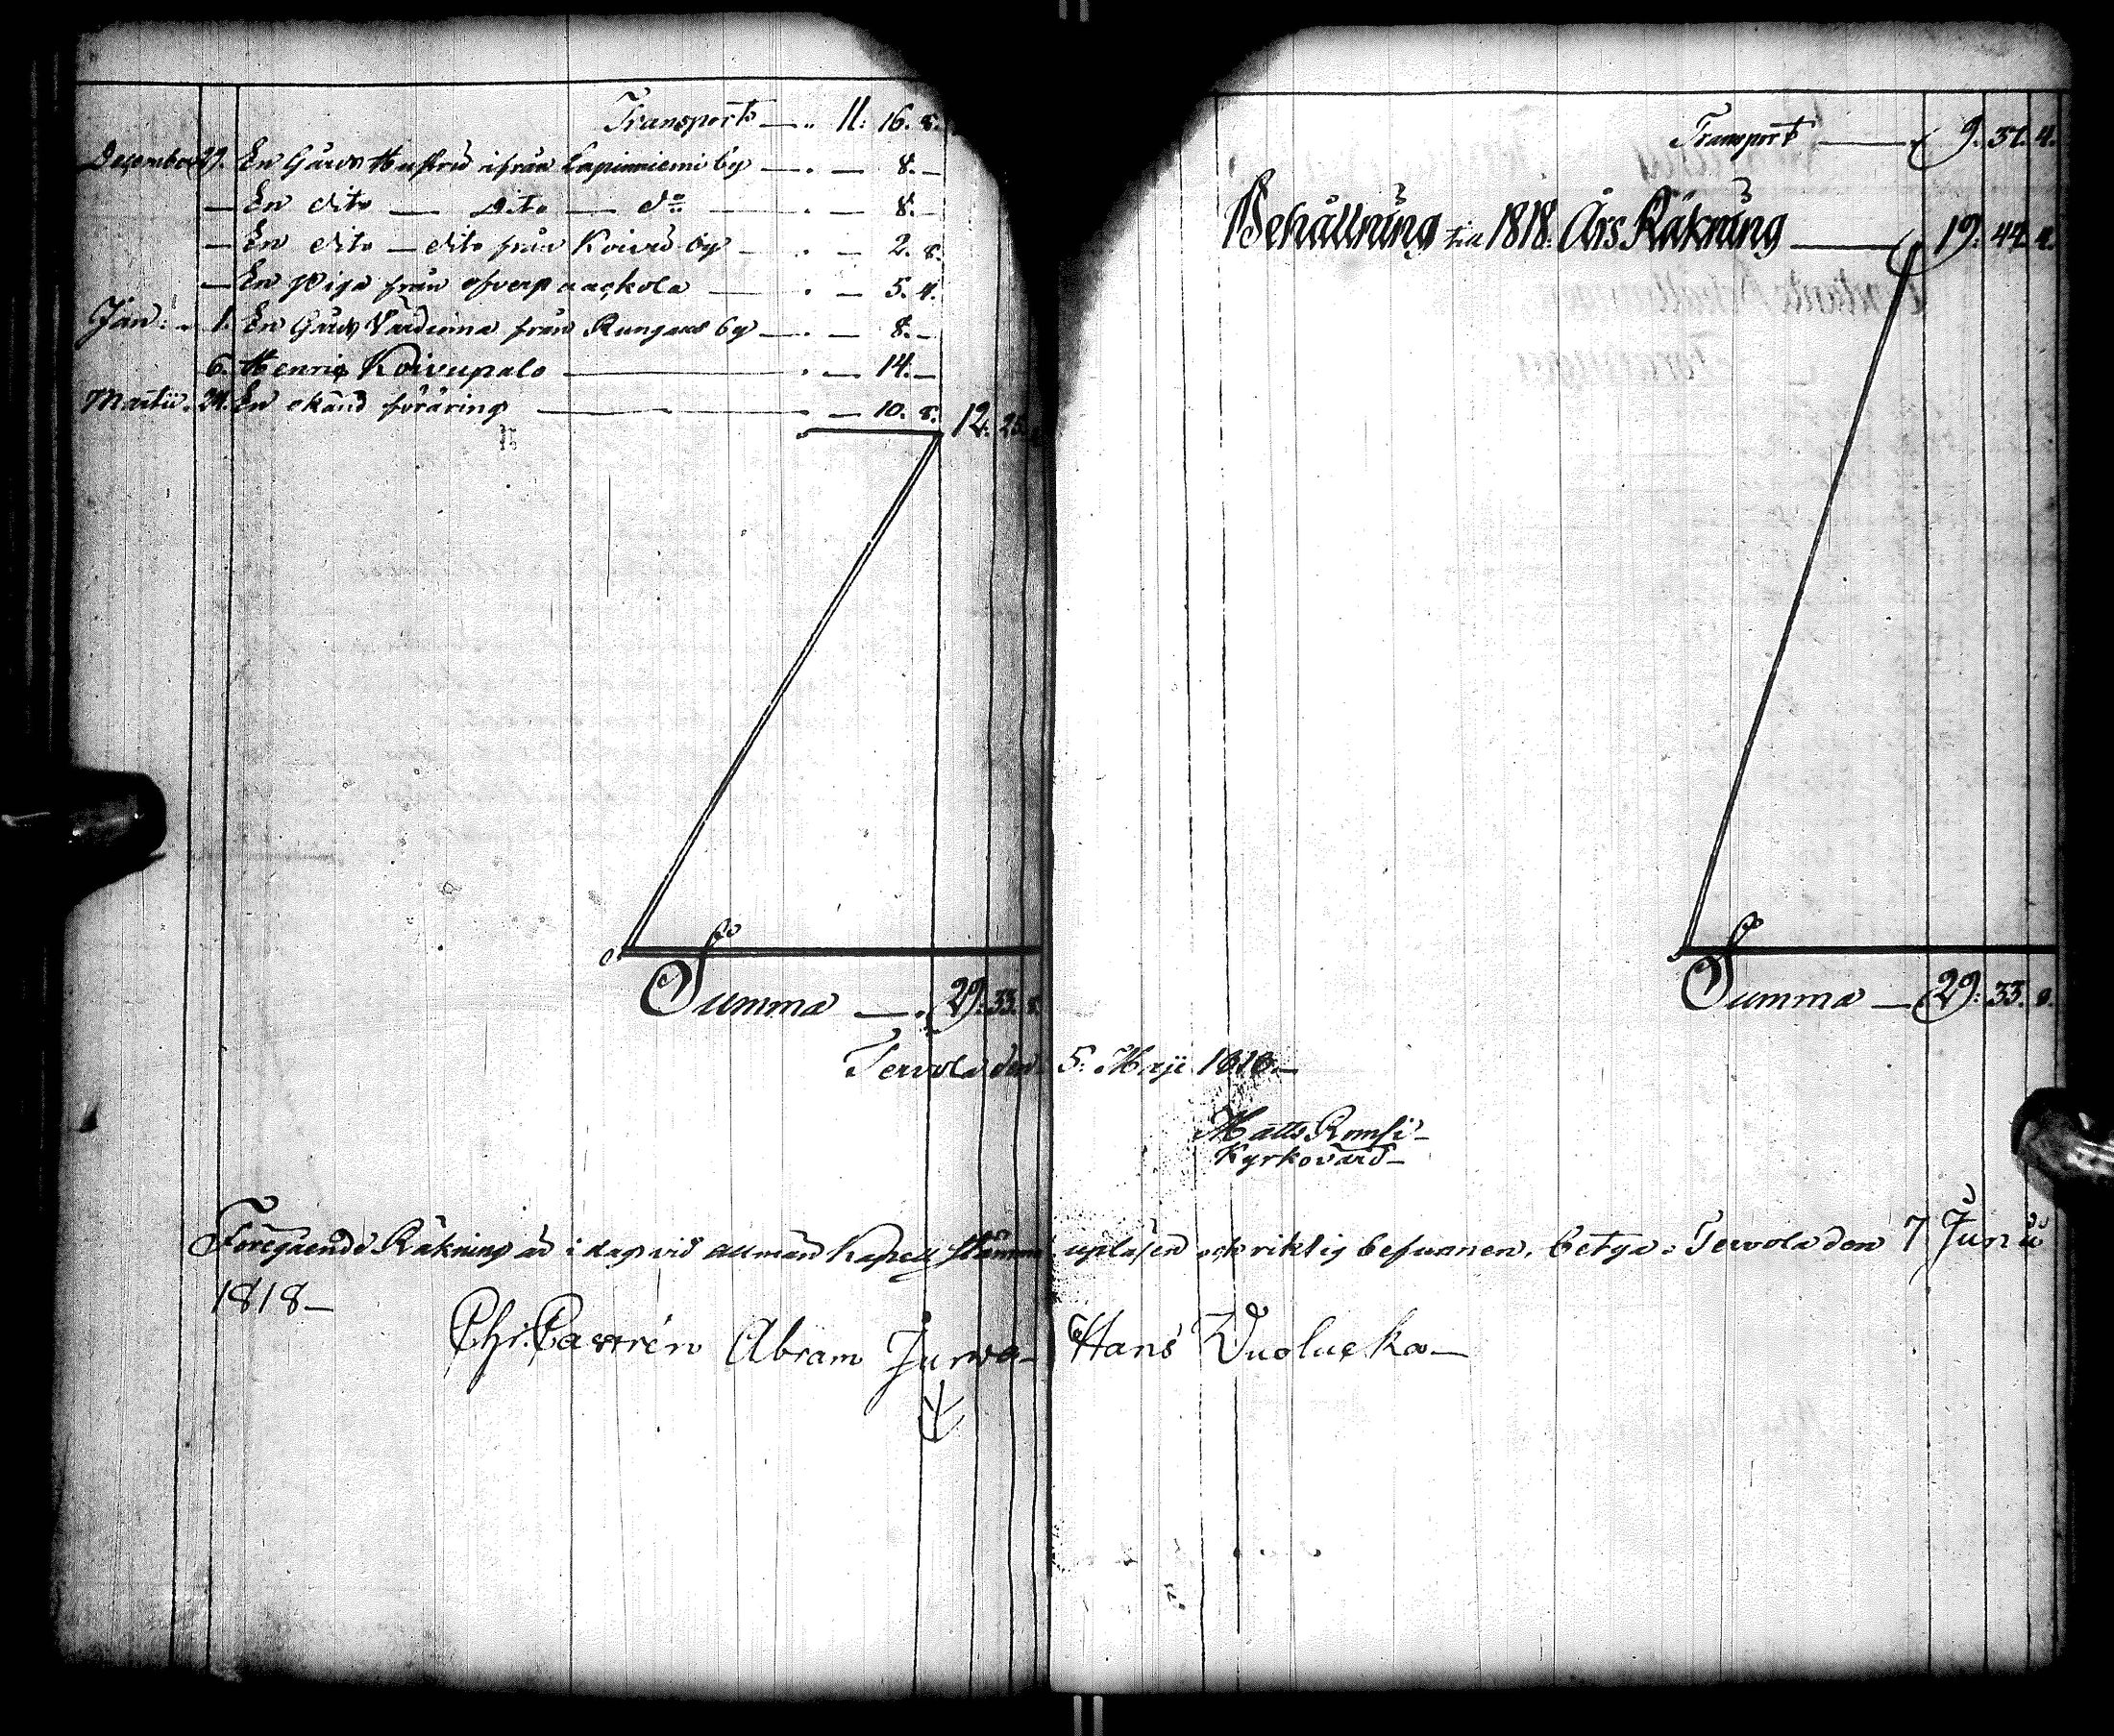 Transport — 11: 16. 8.
December 29. En Gårds Hustru ifrån Lapinniemi by — 8. —
— En dito — dito — do — 8. —
— En dito — dito från Koivu by — 2. 8.
— En Piga från öfverpaackola — 5. 4.
Jan: 1. En Gårds Värdinna från Rungaus by — 8. —
6. Henric Koivupalo — 14. —
Martii. 24. En okänd föräring — 10. 8. 12. 25.
Summa — 29. 33. 8.
Transport — 9. 37. 4.
Behållning till 1818. Års Räkning — 19. 44. 4.
Summa — 29. 33. 8.
Tervola den 5. Maji 1818 —
Matts Romsi —
Kyrkovärd —
Föregående Räkning är i dag vid allmän Kapell stämma upläsen och riktig befunnen, betyga. Tervola den 7 Junii
1818 —
Chr. Castrén Abram Jurva — Hans Vuolucka —